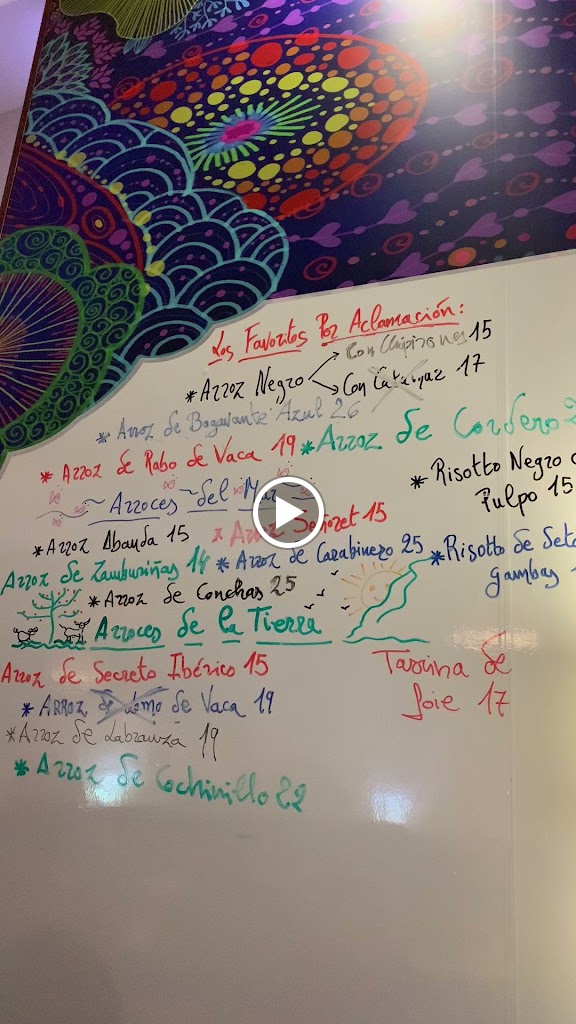 Los Favoritos Por Aclamación:
Con Chipirones 15
* Arroz Negro
Con Calamar 17
* Arroz de Bogavante Azul 26
* Arroz de Cordero 2
* Arroz de Rabo de Vaca 19
* Risotto Negro
Pulpo 15
~ Arroces ~ del Mar ~
* Arroz Abanda 15
* Arroz Señoret 15
Arroz de Zamburiñas 14
* Arroz de Carabinero 25
* Risotto de Seta
gambas
* Arroz de Conchas 25
Arroces de la Tierra
Arroz de Secreto Ibérico 15
* Arroz de Lomo de Vaca 19
* Arroz de Labranza 19
* Arroz de Cochinillo 22
de
foie 17